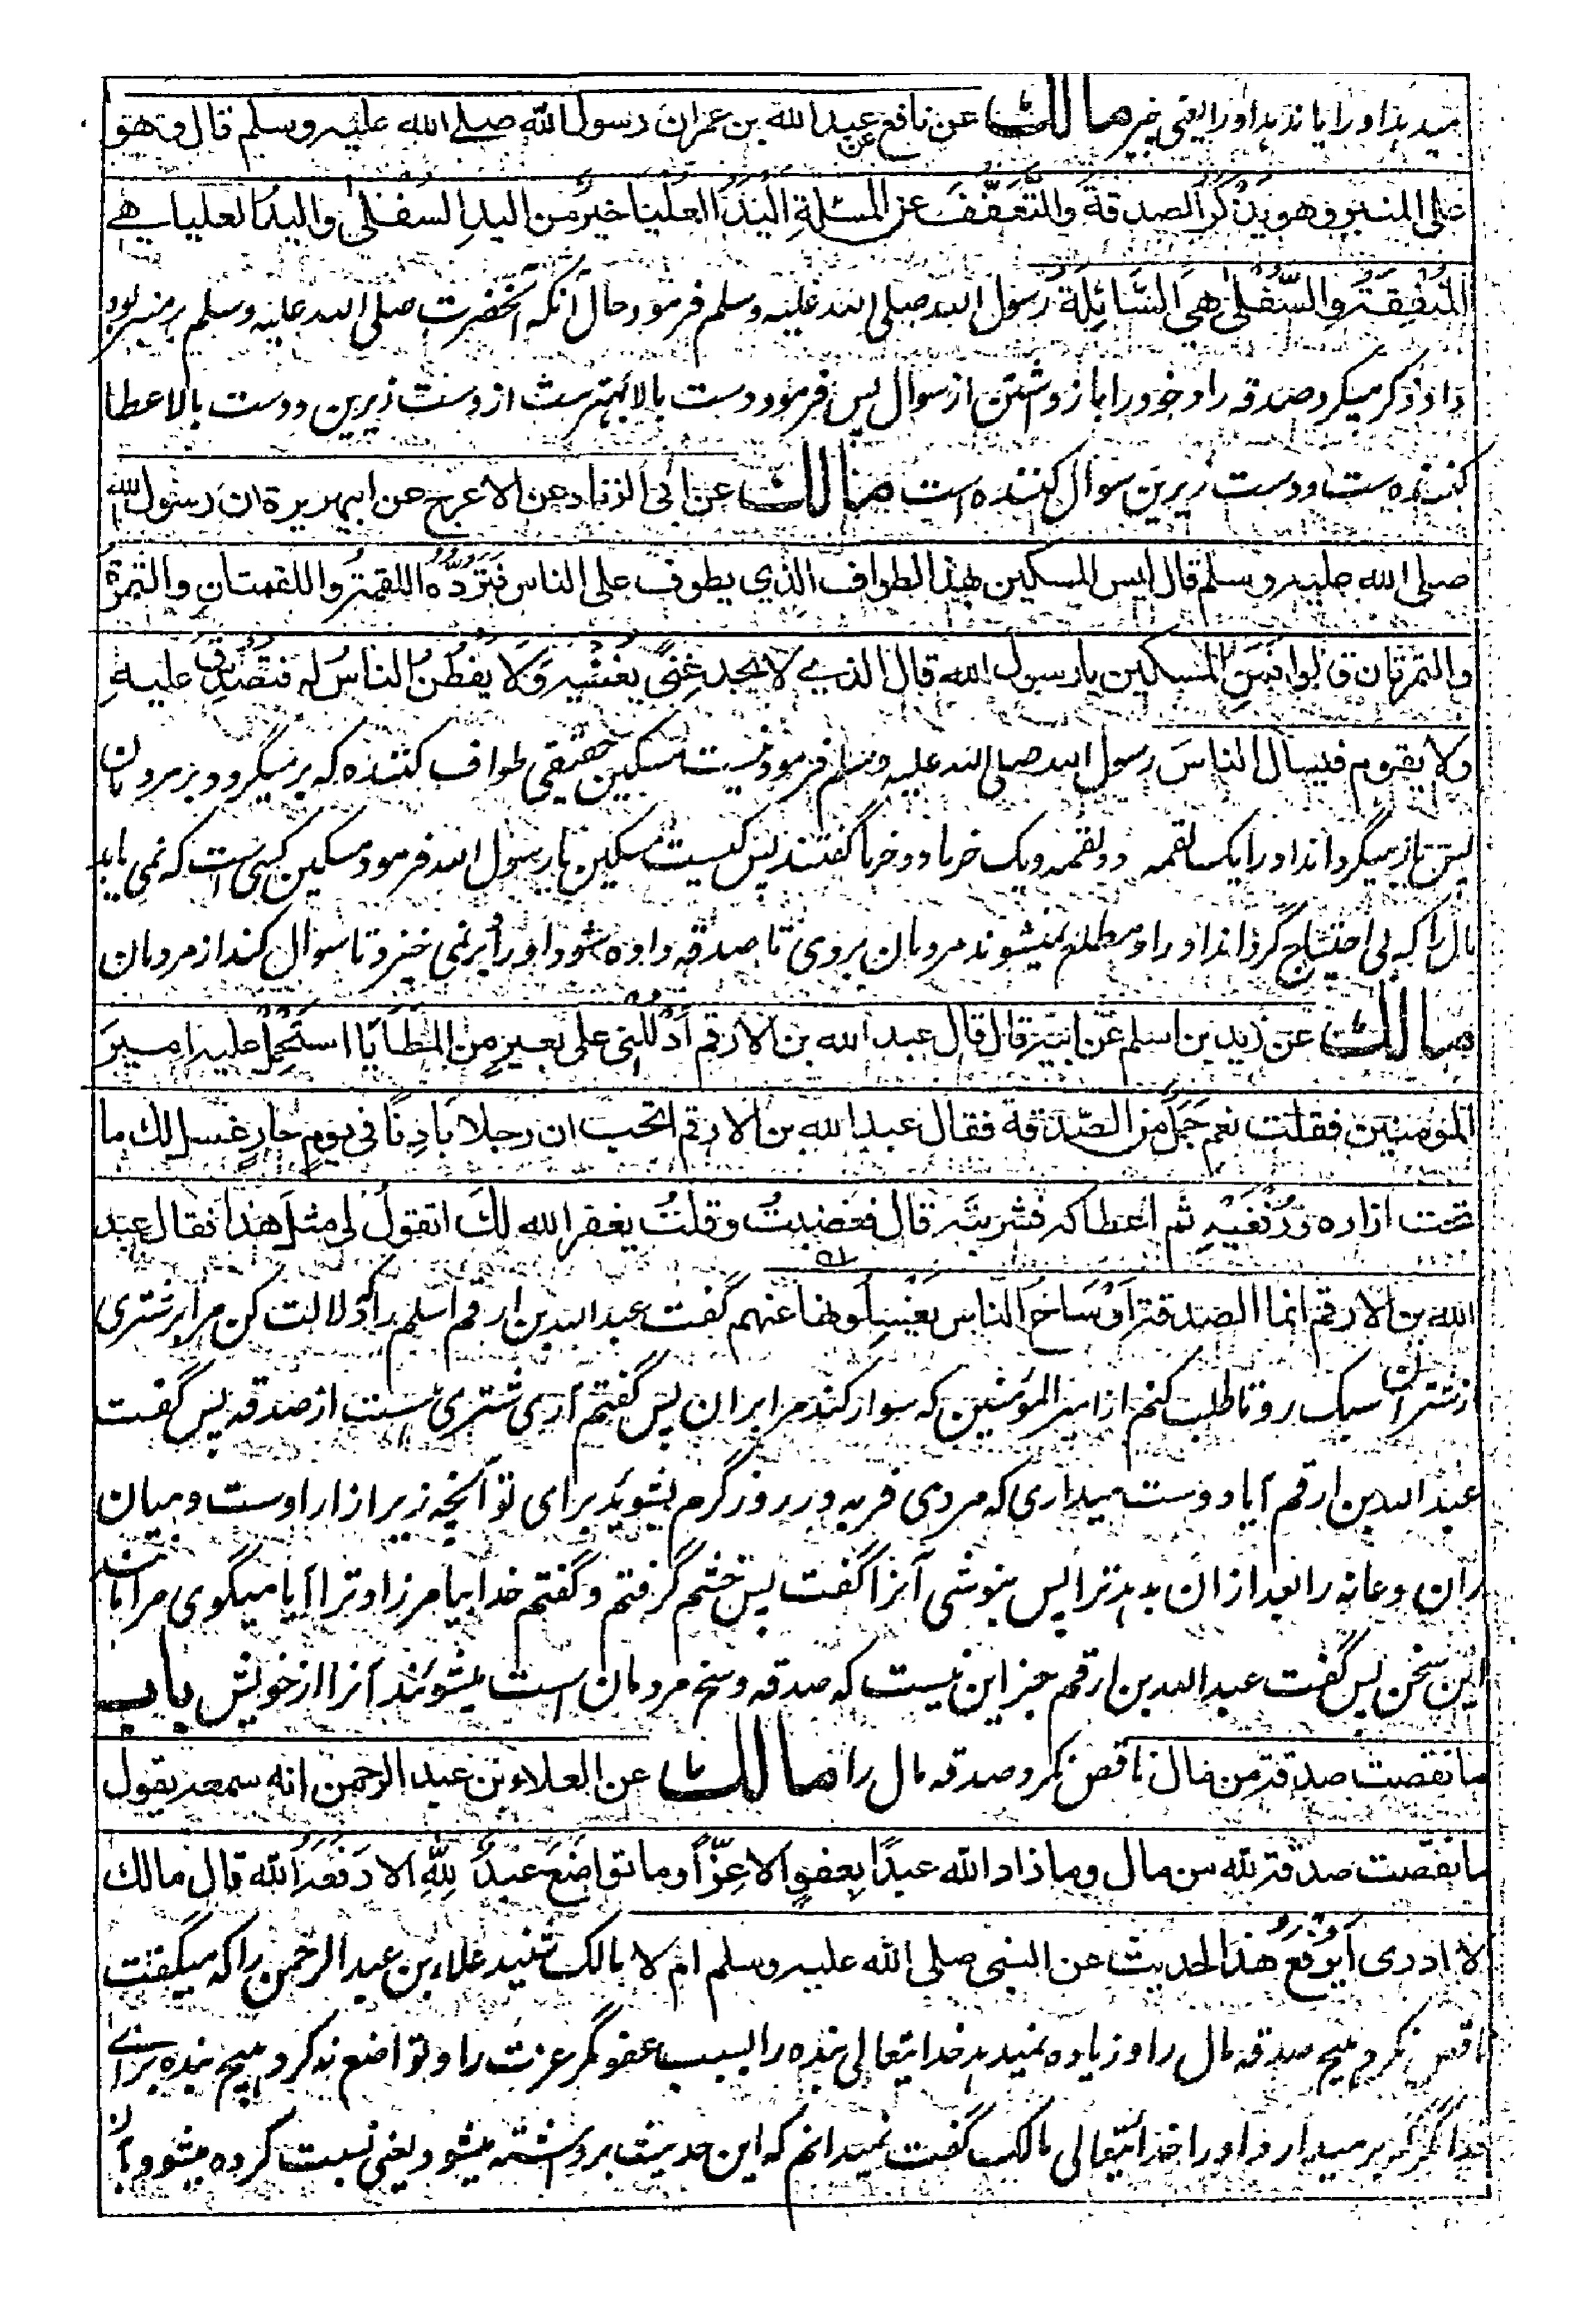 میدہد او را یا ندہد او را یعنی خیر مالك عن نافع عن عبد الله بن عمر ان رسول الله صلے الله علیه وسلم قال وهو
علی المنبر وهو يَذْكُر الصدقة والتَّعَفُّفَ عن المسئلةِ اليَدُ العليَا خيرٌ من اليدِ السفلیٰ واليدُ العليا هے
المُنْفِقَة والسُّفلیٰ هِیَ السَّائِلَة رسول الله صلی الله علیه وسلم فرمود حال آنکه آنحضرت صلی الله علیه وسلم بر منبر بود
و او ذکر میکرد صدقه را و خود را باز داشتن از سوال پس فرمود دست بالا بهترست از دست زیرین و دست بالا عطا
کننده ست و دست زیرین سوال کننده است مالك عن ابی الزناد عن الاعرج عن ابیهریرة ان رسول الله
صلی الله علیه وسلم قال لیس المسکین بهذا الطواف الذي یطوف علی الناس فتَرُدُّهُ اللقمةُ واللقمتانِ والتمرةُ
والتمرتان قالوا فمَنِ المسکین یا رسول الله قال الذے لا یجد غِنًی یُغْنیه وَلا یفطُنُ الناسُ له فتُصُدِّقَ علیهِ
ولا یقوم فیسال الناسَ رسول الله صلی الله علیه وسلم فرمود نیست مسکین حقیقی طواف کننده که برمیگردد بر مردمان
پس باز میگرداند او را یک لقمه و دو لقمه و یک خرما و دو خرما گفتند پس کیست مسکین یا رسول الله فرمود مسکین کسی است که نمی یابد
مال را که بی احتیاج گرداند او را و مطلع نمیشوند مردمان بروی تا صدقه داده شود او را و برنمی خیزد تا سوال کند از مردمان
مالك عن زید بن اسلم عن ابیه قال قال عبد الله بن الارقم اُدْلُلْنی علی بعیرٍ من المَطَایَا استَحْمِلُ علیه امیرَ
المؤمنین فقلت نعم جَمَلٌ من الصَّدَقة فقال عبد الله بن الارقم اتحب ان رجلا بَادِنًا فی یومٍ حارٍ غسل لك ما
تحت ازاره ورُفْغَيْهِ ثم اعطاکه فشربتَه قال فغضبتُ وقلتُ یغفر الله لكَ اتقولُ لی مثلَ هذا فقال عبد
الله بن الارقم انما الصدقة اَوْسَاخ الناس یغسِلُونها عنهم گفت عبد الله بن ارقم اسلم را دلالت کن مرا بر شتری
از شتران سبک رو تا طلب کنم از امیر المؤمنین که سوار کند مرا بران پس گفتم آری شتری هست از صدقه پس گفت
عبد الله بن ارقم آیا دوست میداری که مردی فربه در روز گرم بشوید برای تو آنچه زیر ازار اوست و میان
ران و عانه را بعد ازان بدہد ترا پس بنوشی آنرا گفت پس خشم گرفتم و گفتم خدا بیامرزاد ترا آیا میگوی مرا مانند
این سخن پس گفت عبد الله بن ارقم جز این نیست که صدقه وسخ مردمان است میشویند آنرا از خویش باب
ما نقصت صدقة من مال ناقص نکرد صدقه مال را مالك عن العلاء بن عبد الرحمن انه سمعه یقول
ما نقصت صدقة لله من مال وما زاد الله عبدًا بعفوٍ الا عِزًّا وما تواضَعَ عبدٌ لِلّهِ الا رَفَعَهُ الله قال مالك
لا ادری اَیُرْفَعُ هذا الحدیث عن النبی صلی الله علیه وسلم ام لا مالک شنید علاء بن عبد الرحمن را که میگفت
ناقص نکرد هیچ صدقه مال را و زیاده نمیدہد خدایتعالی بنده را بسبب عفو مگر عزت را و تواضع نه کرد هیچ بنده برائے
خدا مگر که برمیدارد او را خدایتعالی مالک گفت نمیدانم که این حدیث برداشته میشود یعنی نسبت کرده میشود بآن